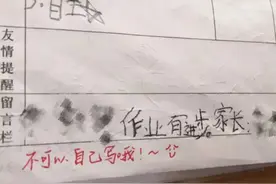 友情提醒留言栏
作业有进步 家长:
不可以自己写哦!~